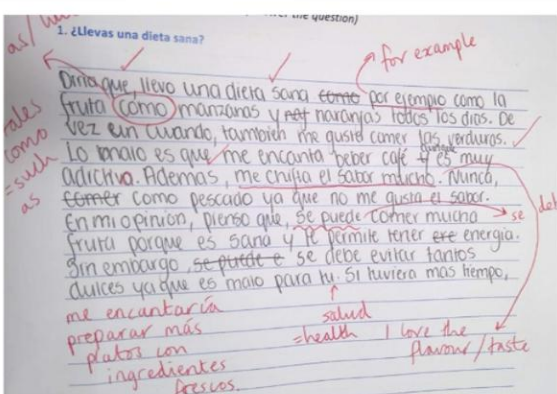 the question)
1. ¿Llevas una dieta sana?
for example
as/
Diria que, llevo una dieta sana como por ejemplo como la
fruta como manzanas y not naranjas todos los dias. De
vez ein cuando, tambien me gusta comer las verduras.
Lo malo es que me encanta beber café y es muy
aunque
adictivo. Ademas, me chifla el sabor mucho. Nunca,
comer como pescado ya que no me gusta el sabor.
En mi opinion, pienso que, se puede comer mucha
fruta porque es sana y te permite tener ere energia.
Sin embargo, se puede e se debe evitar tantos
dulces ya que es malo para tu. Si tuviera mas tiempo,
tales
como
=such
as
se
me encantaría
preparar más
platos con
ingredientes
frescos.
salud
=health
I love the
flavour/taste